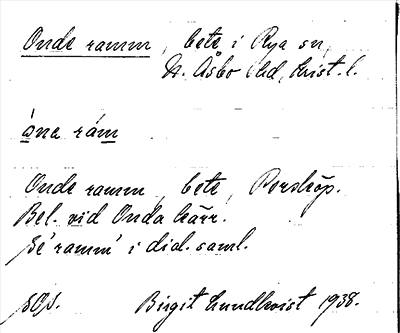 Onde ramm, bete i Rya sn,
N. Åsbo hd, Krist. l.
ɑ́na rám
Onde ramm, bete, Perstorp.
Bel. vid Onda kärr.
Se ramm i dial. saml.
Birgit Lundkvist 1938.